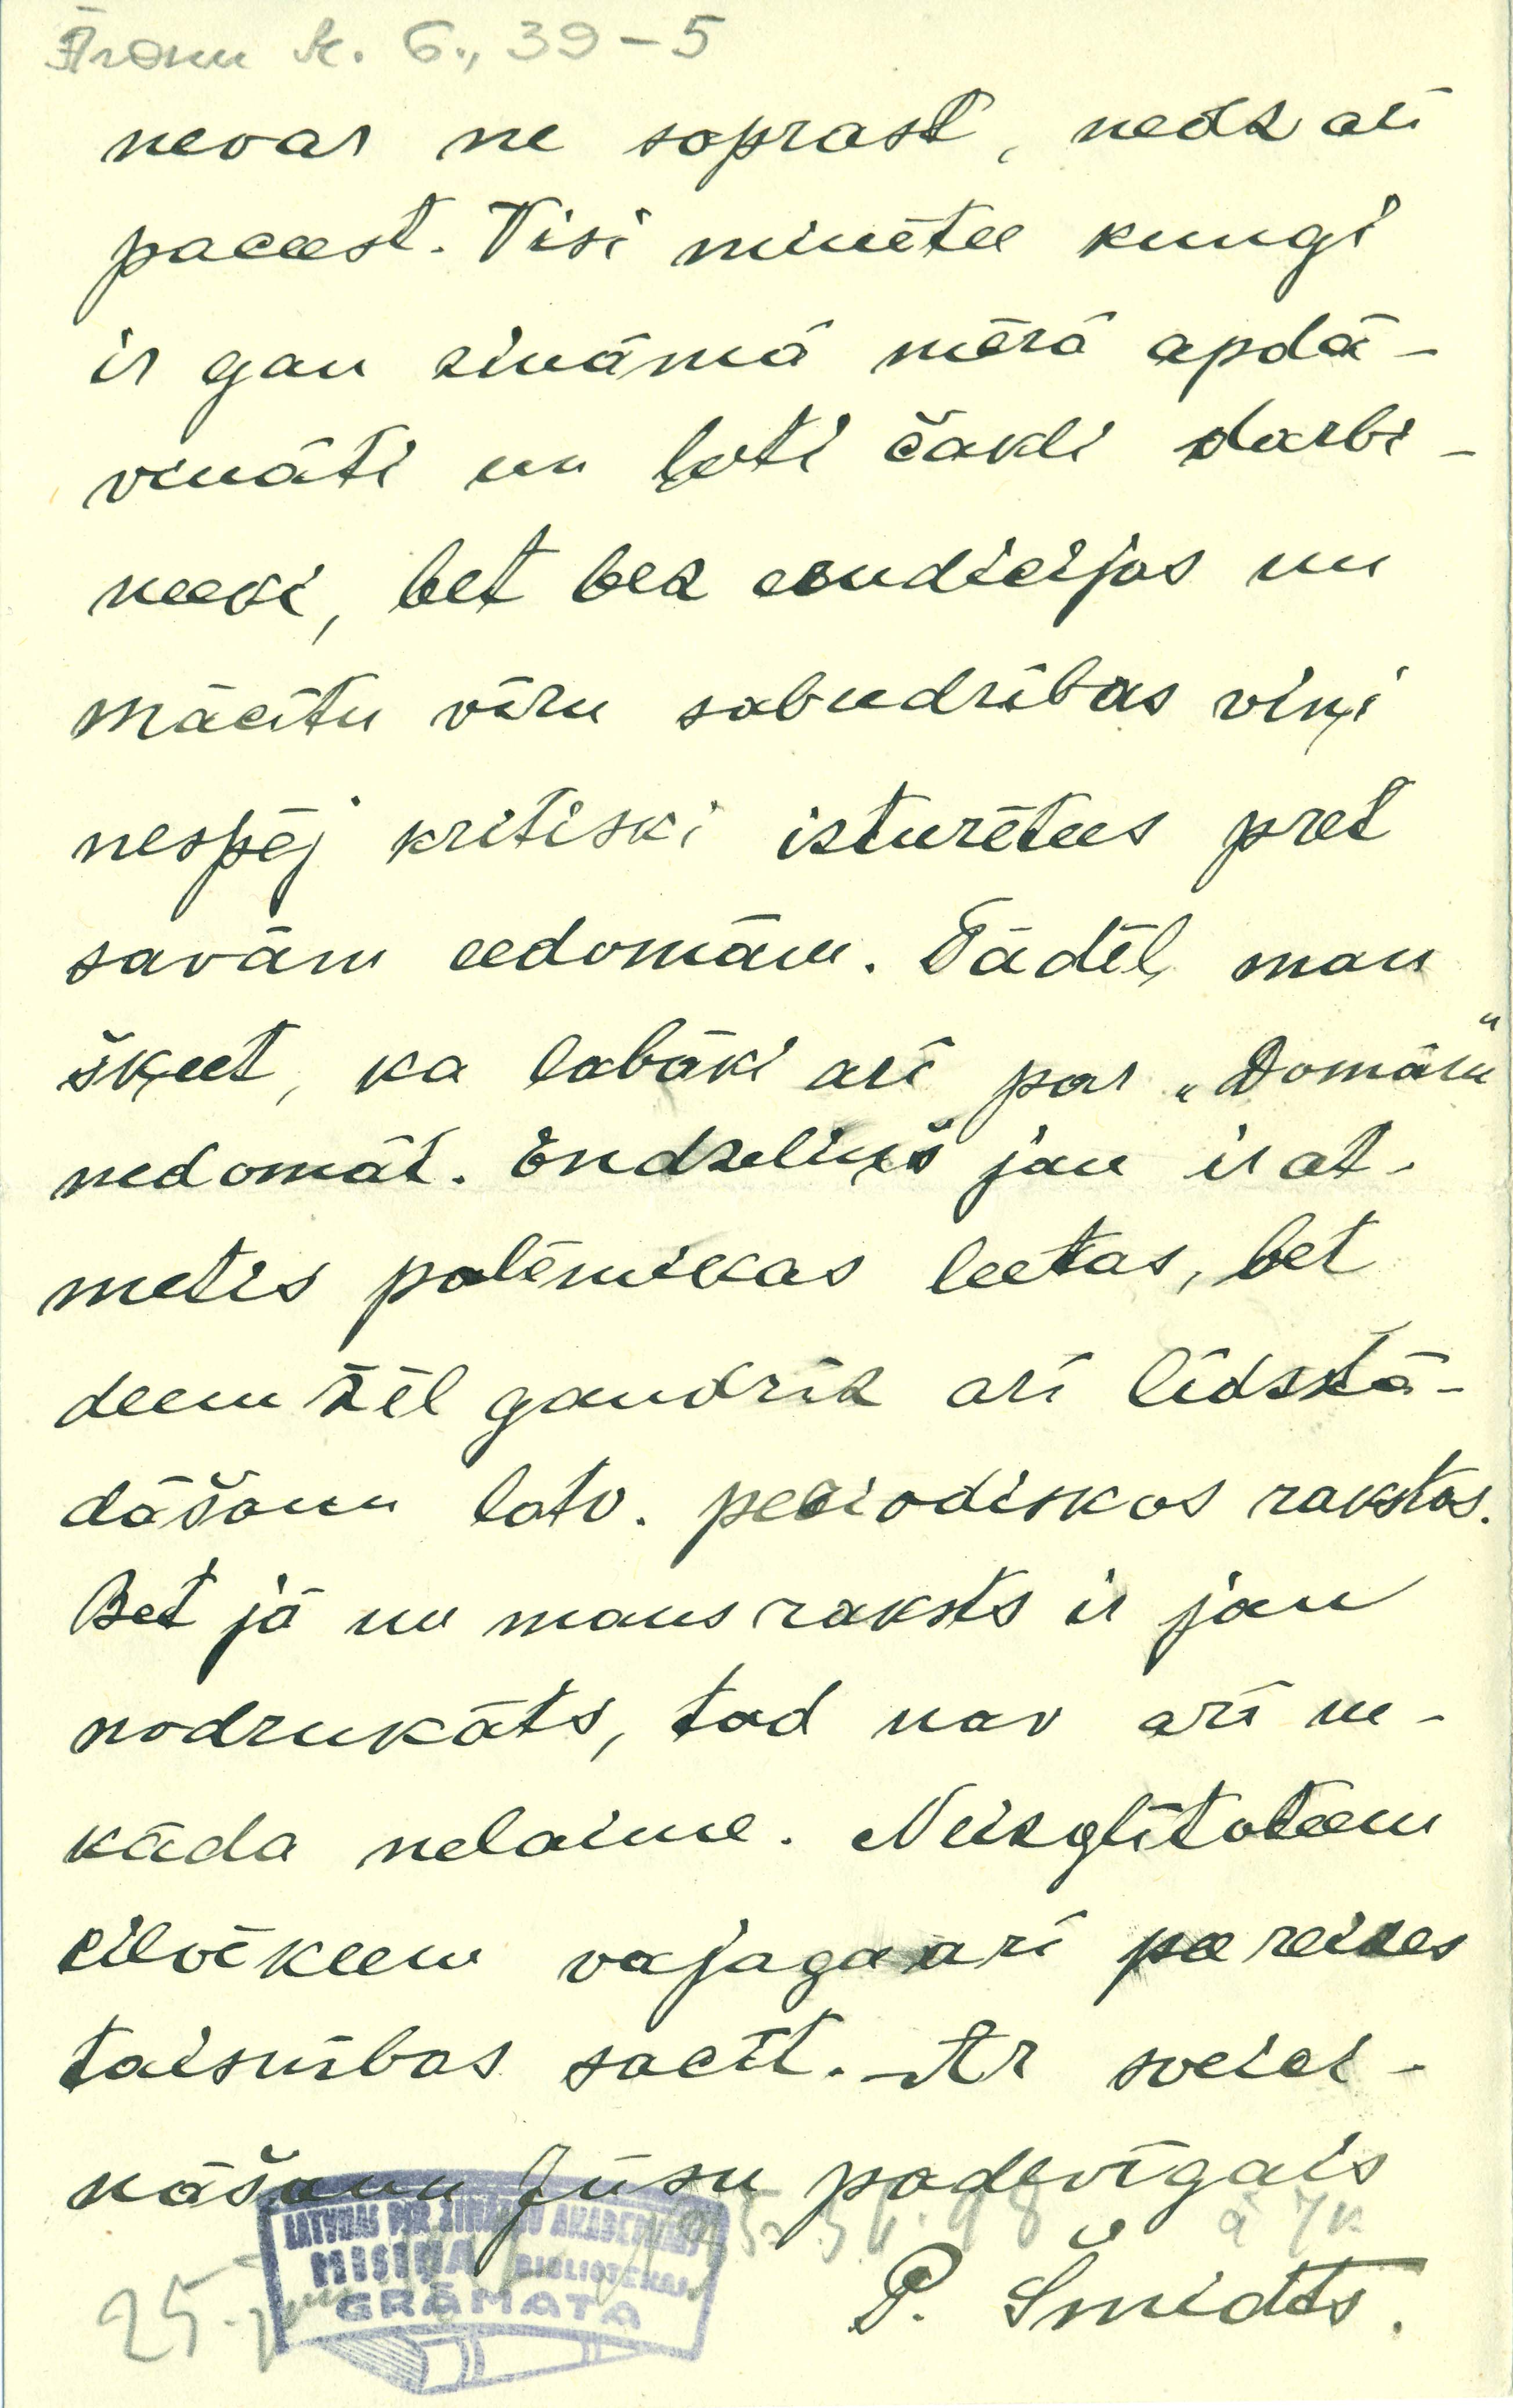 Āronu M. 6., 39-5
nevar ne saprast, nedz arī
paceest. Visi minētee kungi
ir gan zināmā mērā apdā-
vināti un ļoti čakli darbi-
neeki, bet bez erudicijas un
mācītu vīru sabeedrības viņi
nespēj kritiski izturētees pret
savām eedomām. Tādēļ man
šķeet, ka labāki arī par „Domāu“
nedomāt. Endzeliņš jau ir at-
metis polēmikas leetas, bet
deemžēl gandrīz arī līdzstrā-
dāšanu latv. periodiskos rakstos.
Bet jā nu mans raksts ir jau
nodrukāts, tad nav arī ne-
kāda nelaime. Neizglītoteem
cilvēkeem vajaga arī pa reizes
taisnības sacīt. Ar sveici-
nāšanu Jūsu padevīgais
P. Šmidts.
LATVIJAS PSR ZINĀTŅU AKADEMIJAS
MISIŅA BIBLIOTEKAI
GRĀMATA
25.